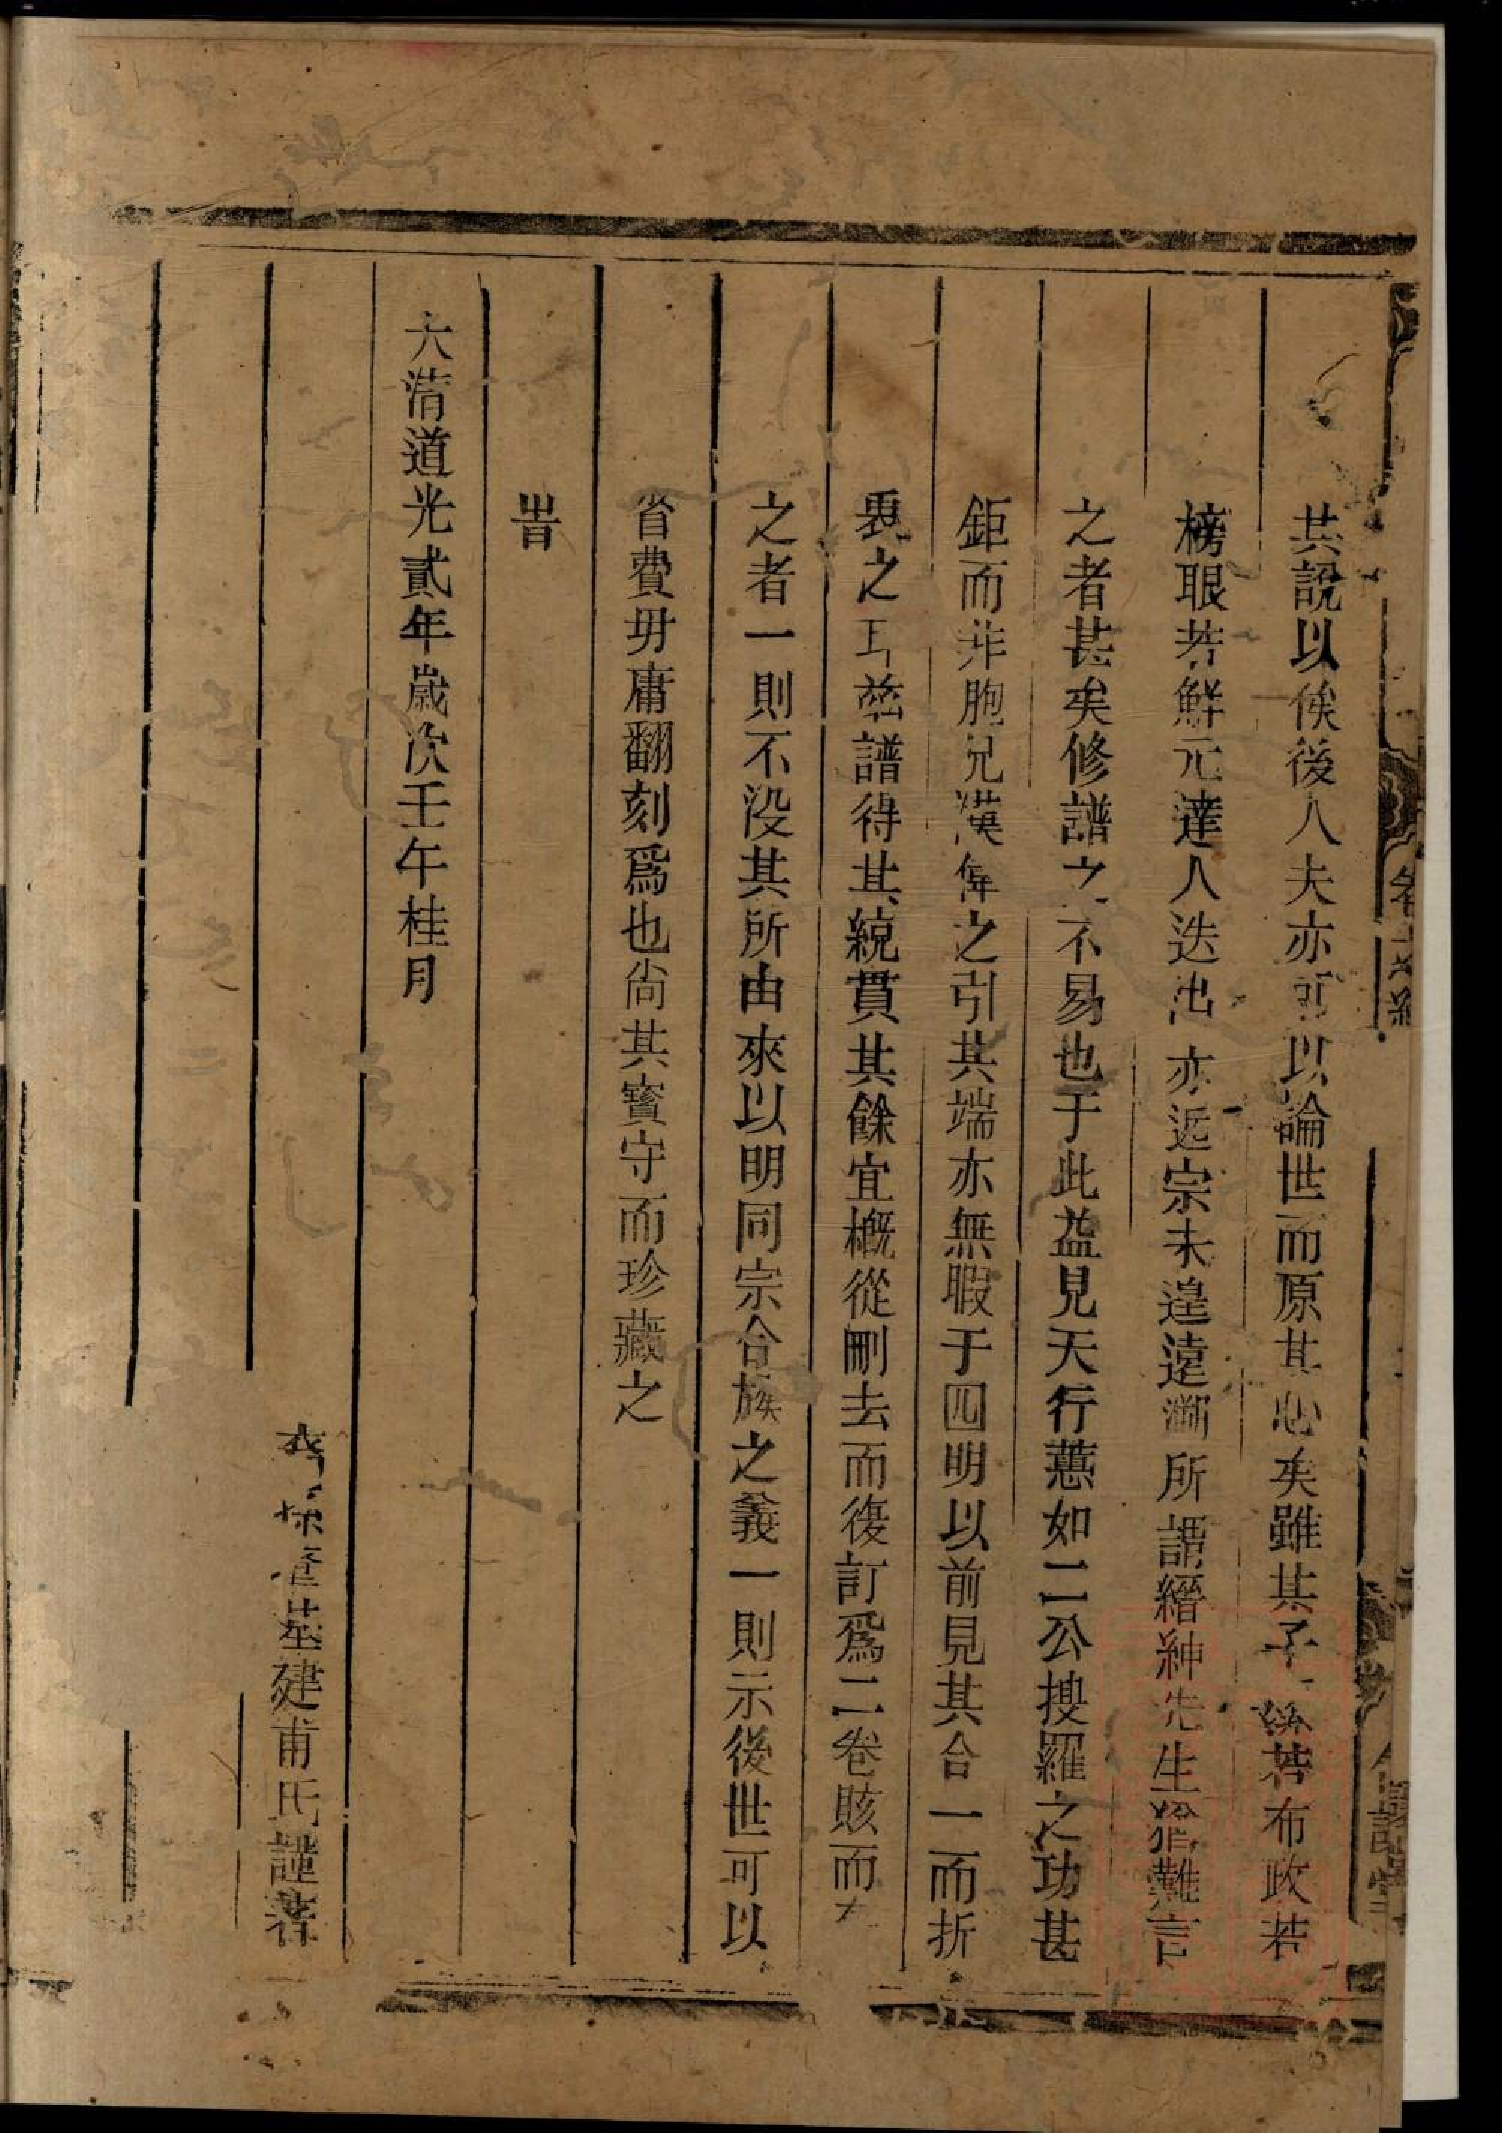 共說以俟後人夫亦可以論世而原其心矣雖其子孫若布政若
榜眼若鮮元達人迭出亦近宗未遑遠溯所謂縉紳先生猶難言
之者甚矣修譜之不易也于此益見天行蕙如二公搜羅之功甚
鉅而非胞兄漢倬之引其端亦無暇于四明以前見其合一而折
衷之耳兹譜得其綂貫其餘宜概從刪去而復訂爲二卷賅而
之者一則不没其所由來以明同宗合族之義一則示後世可以
省費毋庸翻刻爲也尙其寳守而珍藏之
旹
大清道光貳年歲次壬午桂月
孫基建甫氏謹著